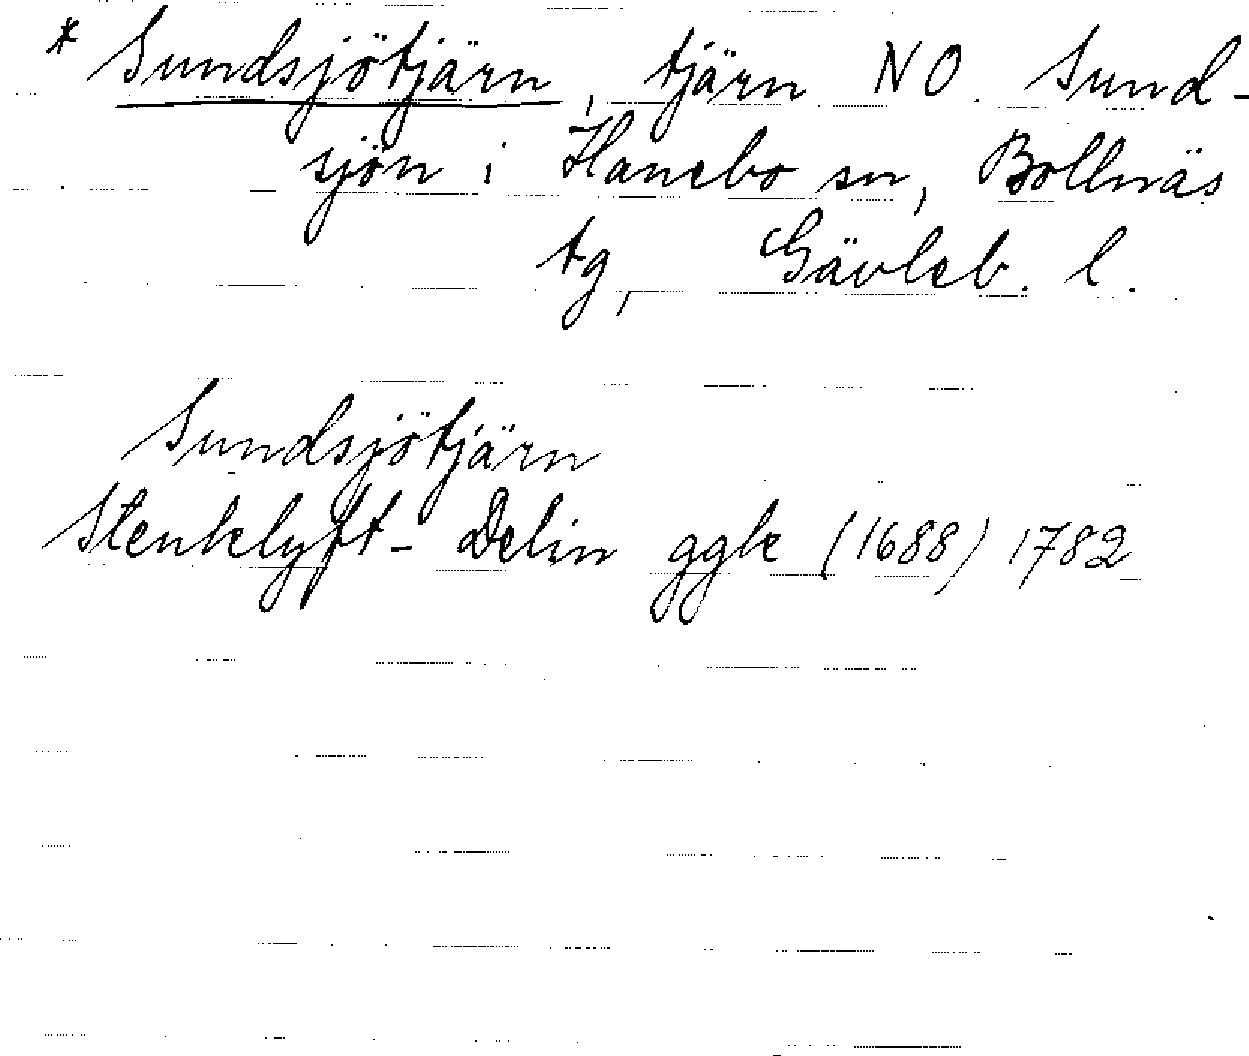 * Sundsjötjärn, tjärn NO Sund-
sjön i Hanebo sn, Bollnäs
tg, Gävleb. l.
Sundsjötjärn
Stenklyft- Delin ggk (1688) 1782